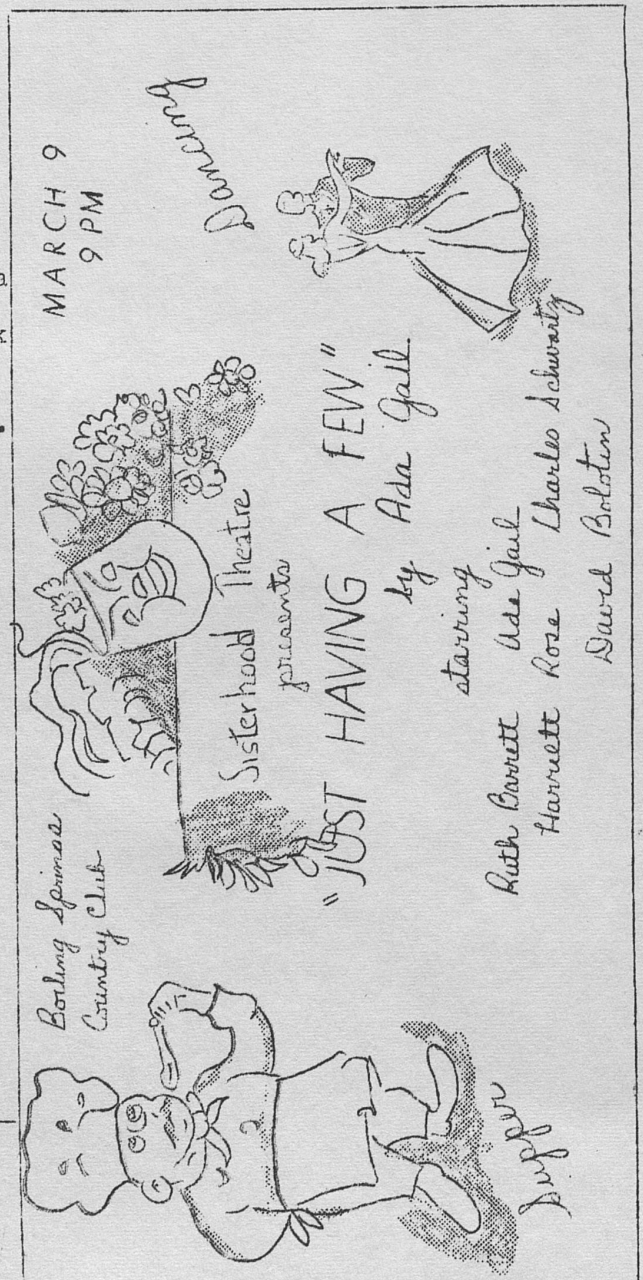 Boiling Springs
Country Club
MARCH 9
9 PM
Dancing
Sisterhood Theatre
presents
"JUST HAVING A FEW"
by Ada Gail
starring
Ruth Barrett Ada Gail
Harriett Rose Charles Schwartz
David Bolotin
Supper